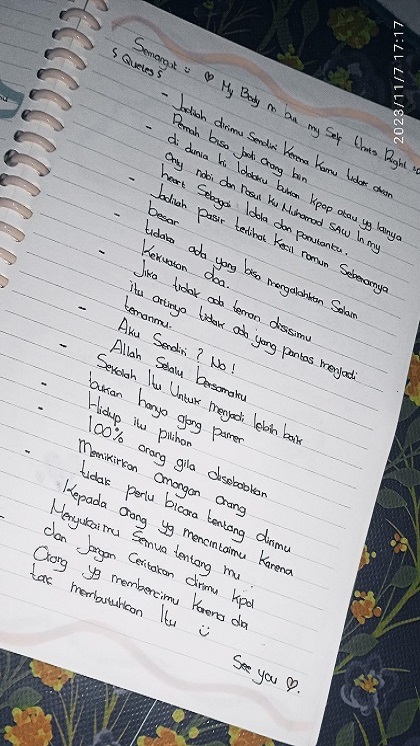 Semangat :: ♡ My Body m but my Self Uats Right
{ Quetes }
- Jadilah dirimu Sendiri Karena Kamu tidak akan
Pernah bisa jadi orang lain
- di dunia ki Idolaku bukan Kpop atau yg lainya
Only nabi dan Rosul Ku Muhamad SAW In my
heart Sebagai Idola dan panutanku.
- Jadilah pasir terlihat Kecil namun Sebenarnya
besar
- tidak ada yang bisa mengalahkan Selain
Kekuatan doa.
- Jika tidak ada teman disisimu
itu artinya tidak ada yang pantas menjadi
temanmu.
- Aku Sendiri ? No !
Allah Selalu bersamaku
- Sekolah Itu Untuk menjadi lebih baik
bukan hanya ajang pamer
- Hidup itu pilihan
- 100% orang gila disebabkan
Memikirkan Omongan orang
- tidak perlu bicara tentang dirimu
Kepada orang yg mencintaimu Karena
Menyukaimu Semua tentang mu
- dan Jangan Ceritakan dirimu kpd
Orang yg membencimu Karena dia
tak membutuhkan Itu
See you ♡.
2023/11/7 17:17